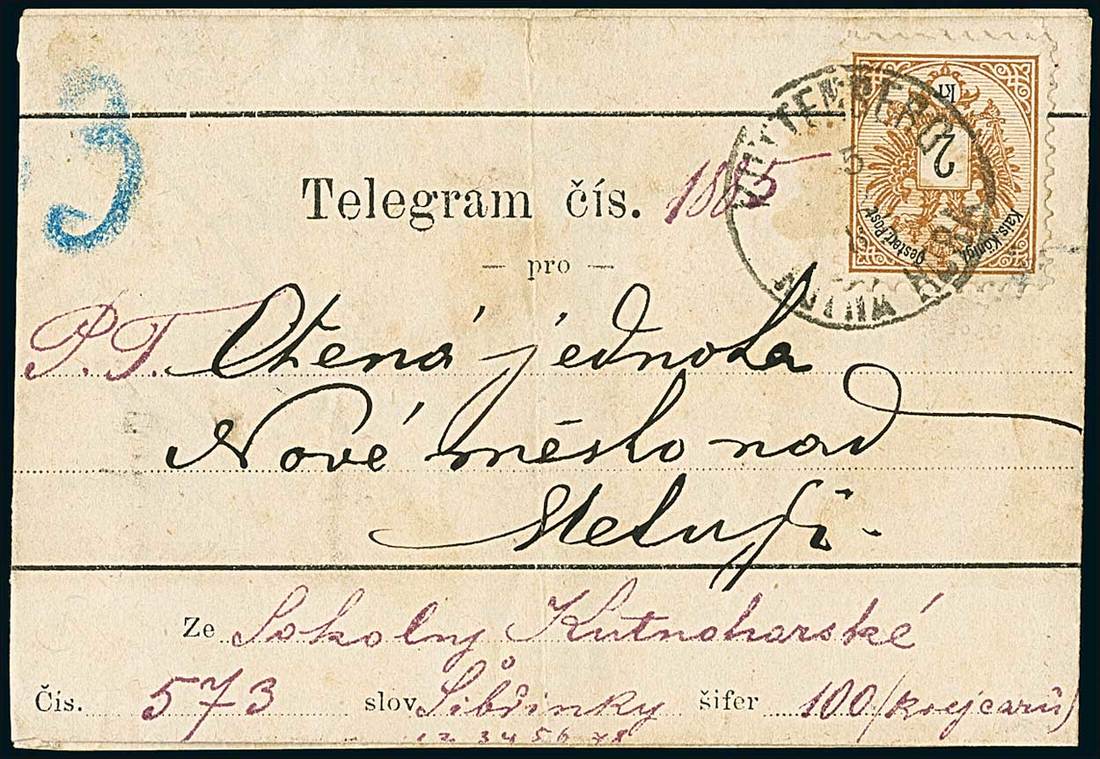 3
Kais. Königl.
Oesterr. Post.
2
kr
KUTTENBERG
5
KUTNÁ HORA
Telegram čís. 1885
— pro —
P. T. Ctěná jednota
Nové město nad
Metují.
Ze Sokolny Kutnohorské
Čís. 573 slov Šibřinky šifer 100 (krejcarů)
12 34 56 78